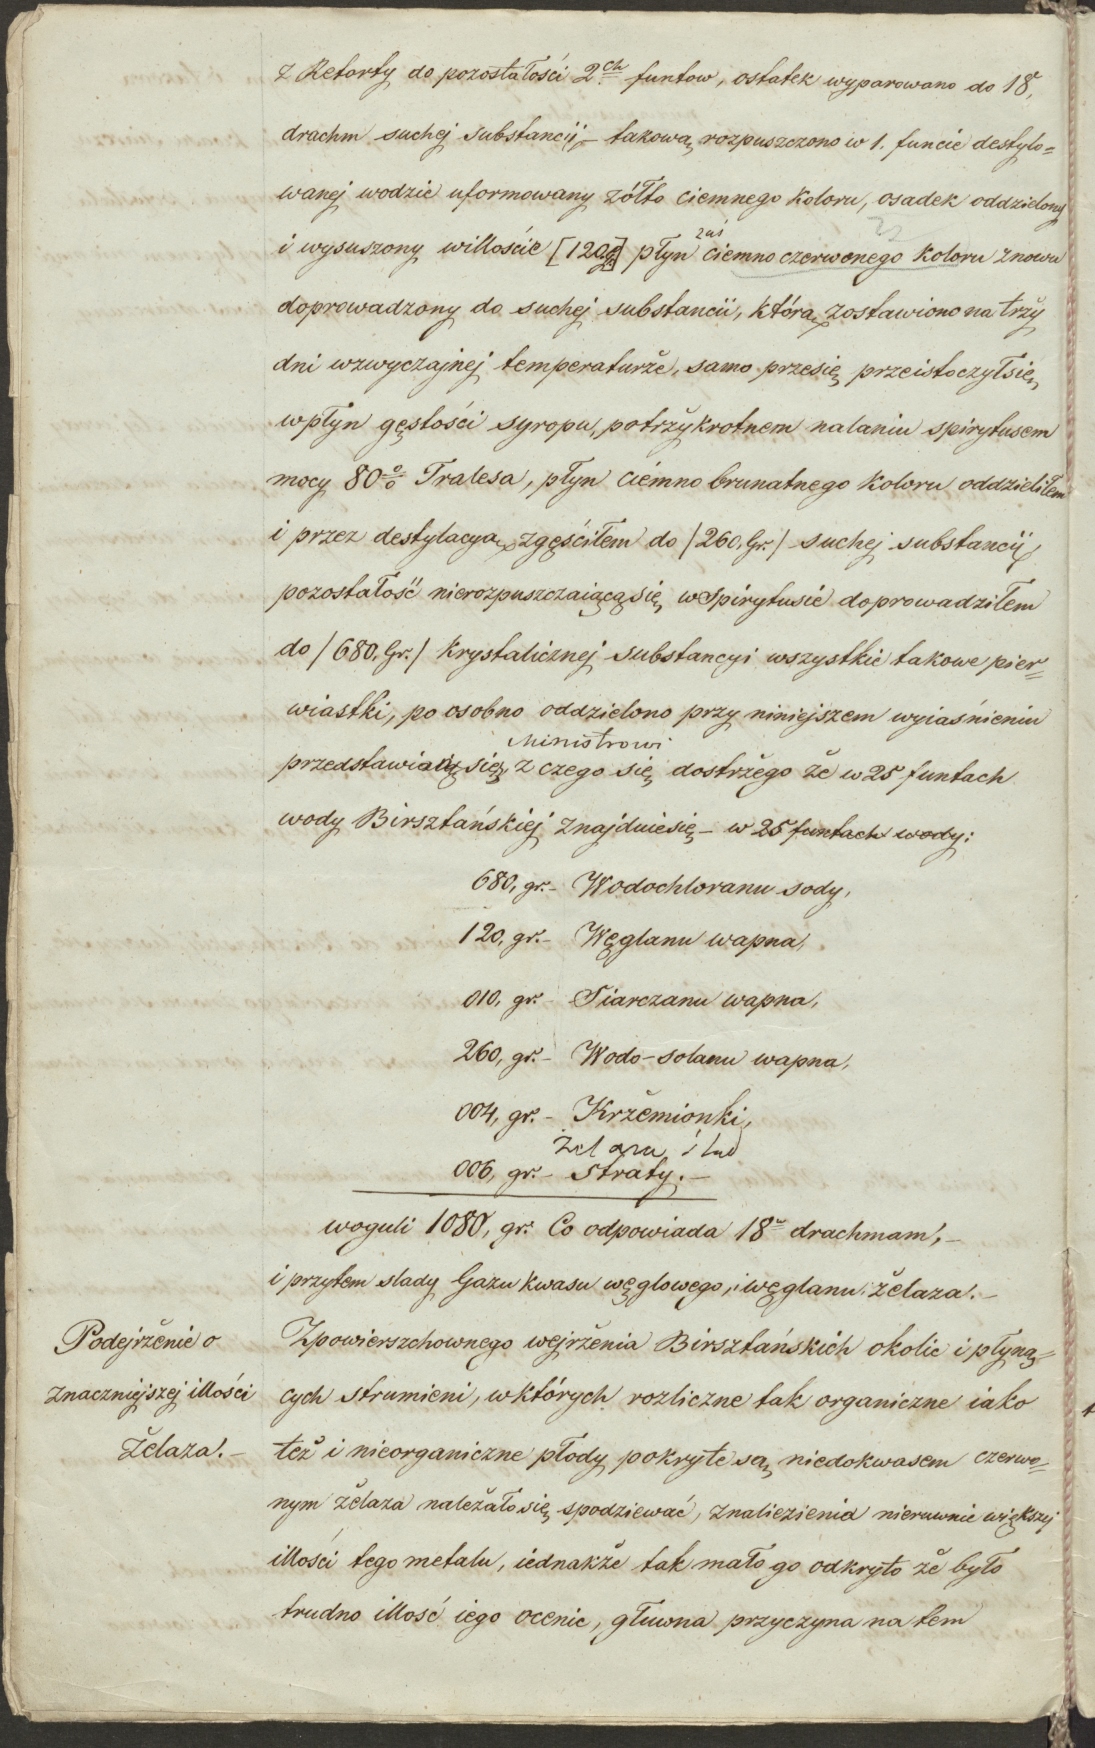 z Retorty do pozostałości 2ch funtow, ostatek wyparowano do 18,
drachm suchej substancij, – takową rozpuszczono w 1. funcie destylo=
wanej wodzie uformowany żółto ciemnego koloru, osadek oddzielony
i wysuszony willoście [120 g] płyn zaś ciemno czerwonego koloru znowu
doprowadzony do suchej substancii, którą zostawiono na trzy
dni wzwyczajnej temperaturže, samo przesię przeistoczyłsię,
wpłyn gęstości syropu, potrzykrotnem nalaniu spirytusem
mocy 80% Tralesa, płyn ciémno brunatnego koloru oddzieliłem
i przez destylacyą zgęściłem do /260, Gr./ suchej substancij,
pozostałość nierozpuszczaiącąsię w spirytusie doprowadziłem
do /680, Gr./ krystalicznej substancyi wszystkie takowe pier=
wiastki, po osobno oddzielono przy niniejszem wyiaśnieniu
Ministrowi
przedstawia się, z czego się dostržego že w 25 funtach
wody Birsztańskiej znajduiesię – w 25 funtach wody:
680, gr. – Wodochloranu sody,
120, gr. – Węglanu wapna,
010, gr. – Siarczanu wapna,
260, gr. – Wodo-solanu wapna,
004, gr. – Kržemionki,
Żelaza, i
006, gr. – straty. –
woguli 1080, gr. Co odpowiada 18 drachmam, –
i przytem slady Gazu kwasu węglowego, i węglanu želaza. –
Podejrženie o
znaczniejszej illości
želaza! –
Zpowierszchownego wejrženia Birsztańskich okolic i płyną=
cych strumieni, wktórych rozliczne tak organiczne iako
też i nieorganiczne płody pokryte są niedokwasem czerwo=
nym želaza naležałosię spodziewać, znaliezienia nieruwnie większej
illości tego metalu, iednakže tak mało go odkryto že było
trudno illość iego ocenic, głuwna przyczyna na tem